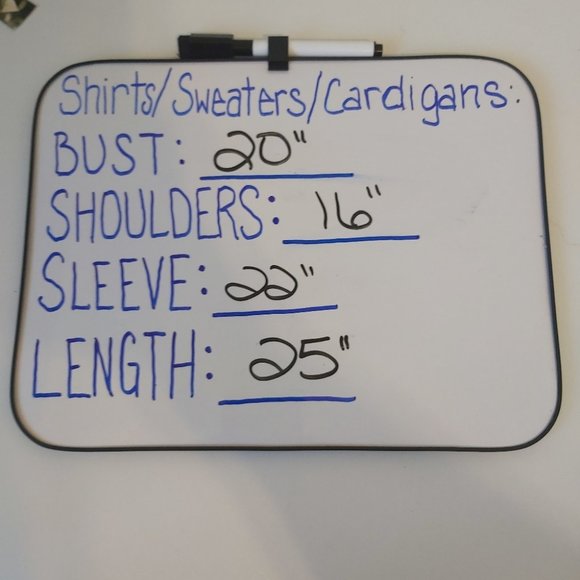 Shirts/Sweaters/Cardigans:
BUST: 20"
SHOULDERS: 16"
SLEEVE: 22"
LENGTH: 25"